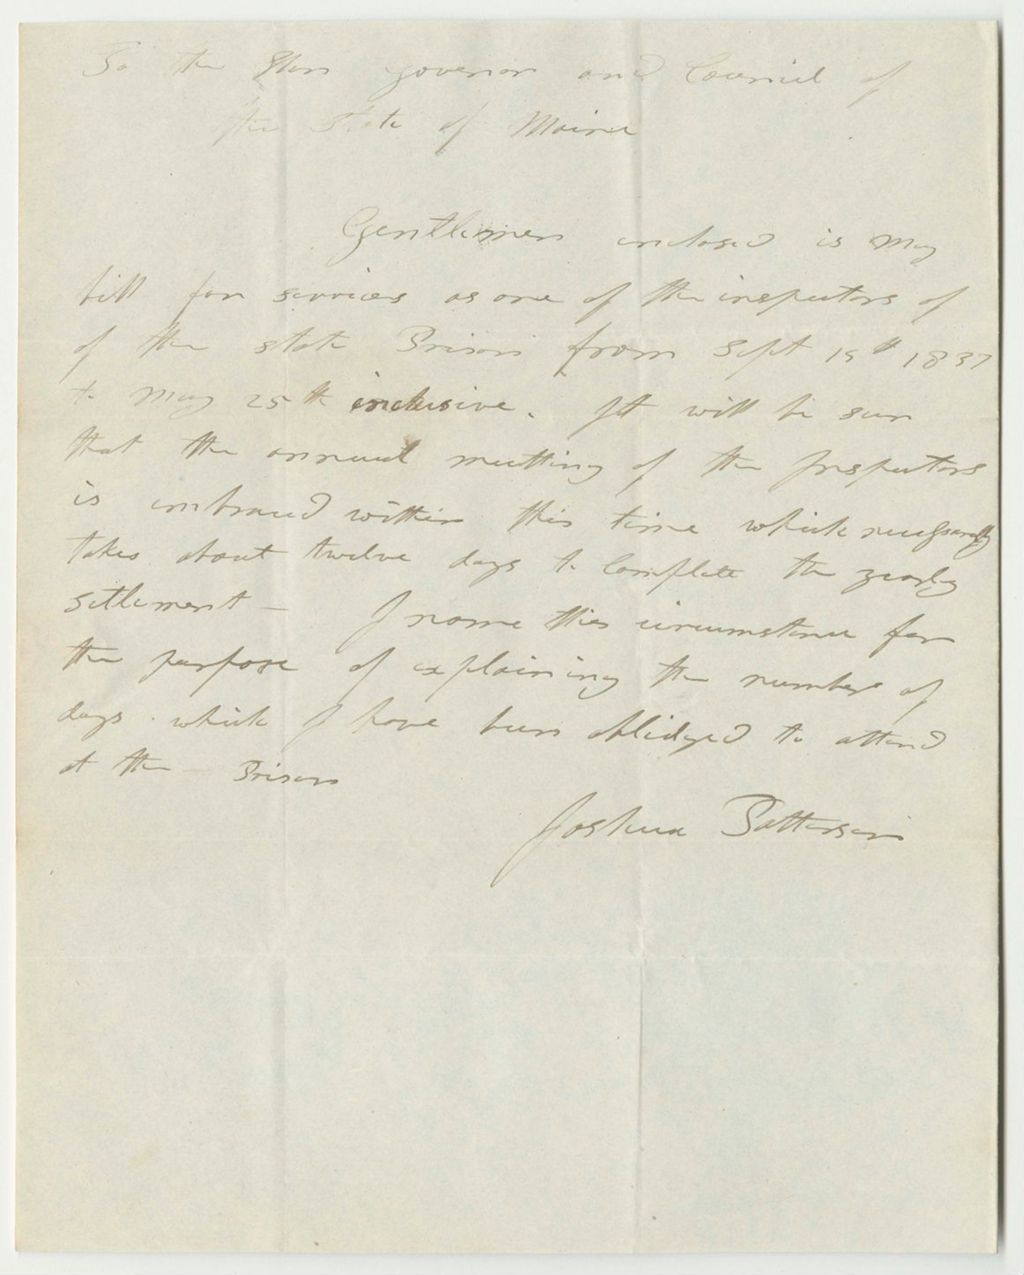 To the Hon Governor and Council of
the State of Maine
Gentlemen inclosed is may
bill for services as one of the inspectors of
of the state Prison from Sept 19th 1837
to May 25th inclusive. It will be seen
that the annual meetting of the Inspectors
is embraced within this time which necessarily
takes about twelve days to complete the yearly
settlement — I name this circumstance for
the purpose of explaining the number of
days which I have been obliidged to attend
at the — Prison
Joshua Patterson